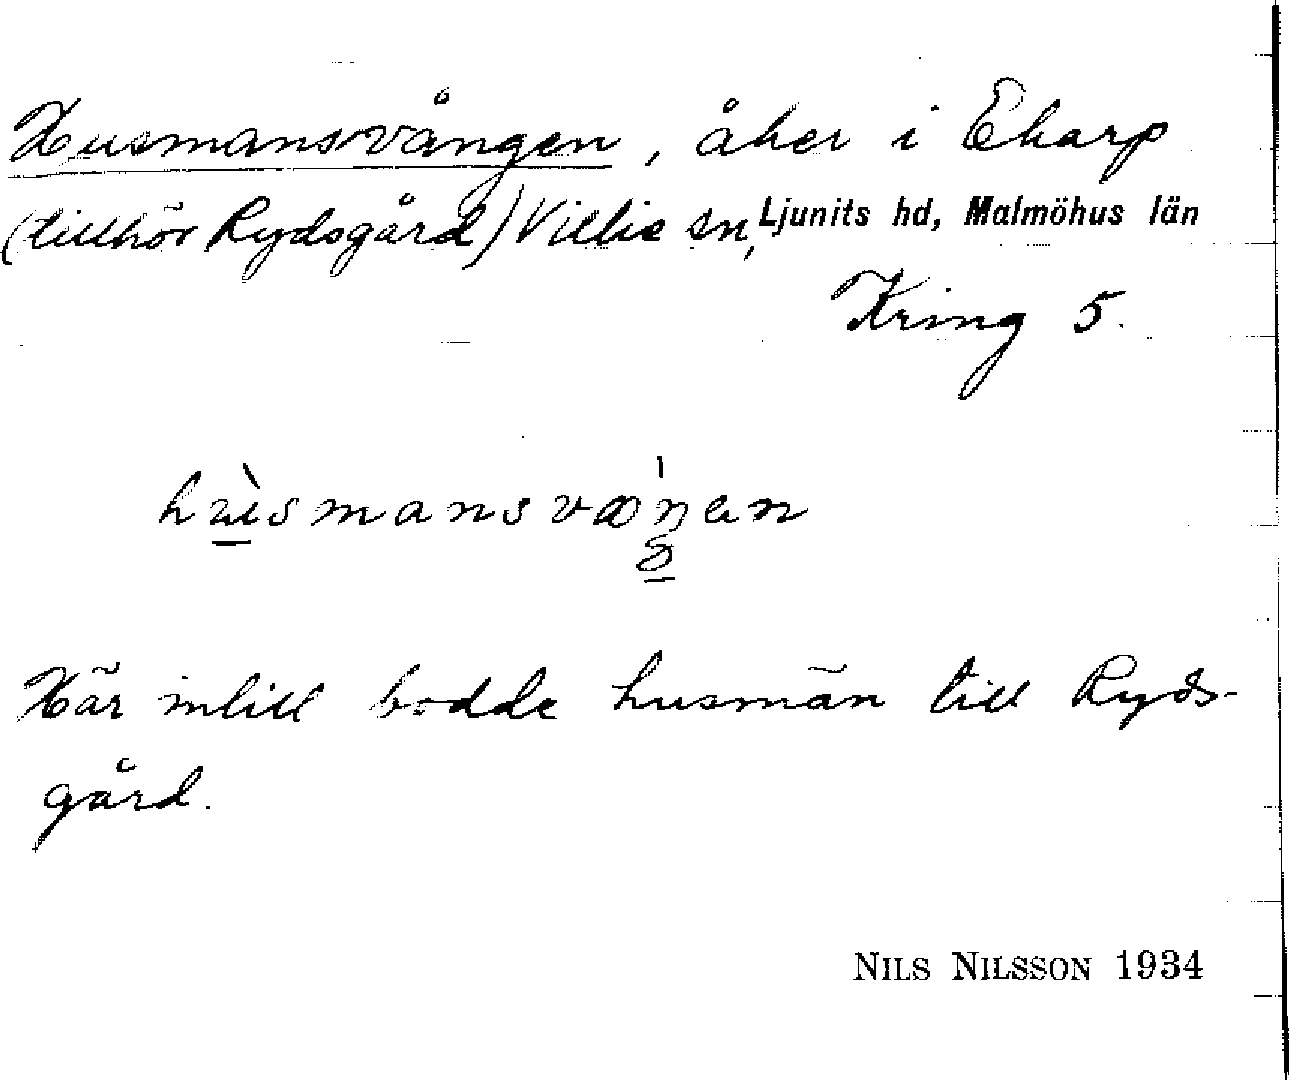 Husmansvången, åker i Ekarp
(tillhör Rydsgård) Villie sn, Ljunits hd, Malmöhus län
Kring 5.
Här intill bodde husmän till Ryds-
gård.
NILS NILSSON 1934